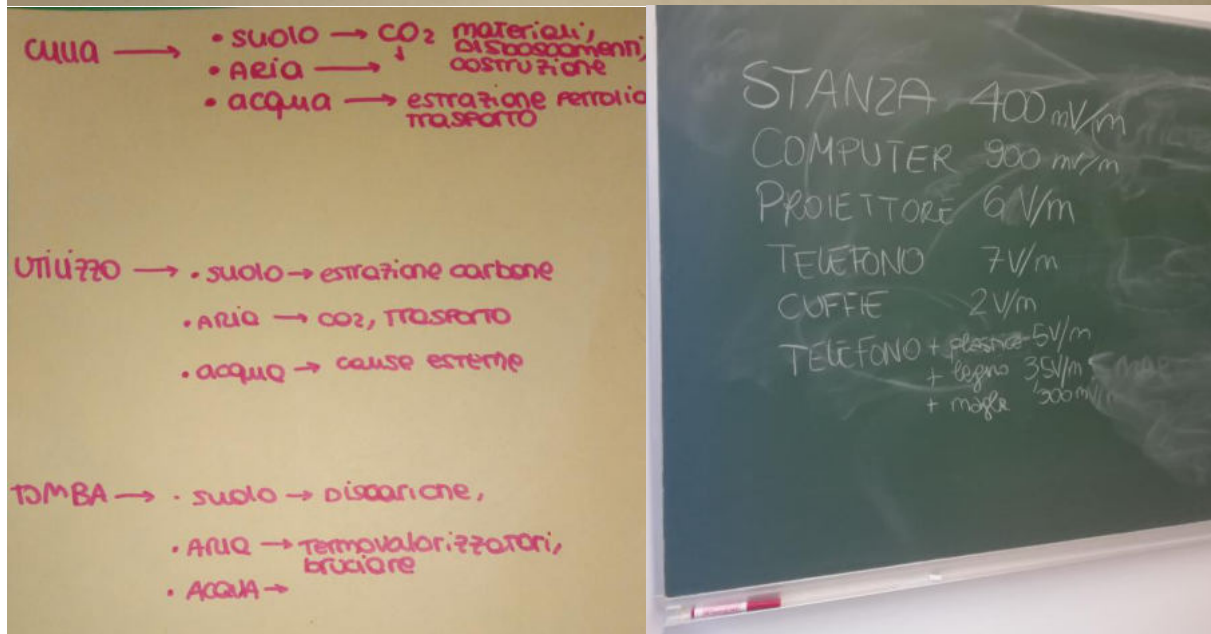 CULLA → • SUOLO → CO2 materiali,
DISBOSCAMENTI,
• ARIA → COSTRUZIONE
• acqua → estrazione petrolio
TRASPORTO
UTILIZZO → • SUOLO → estrazione carbone
• ARIA → CO2, TRASPORTO
• acqua → cause esterne
TOMBA → • SUOLO → DISCARICHE,
• ARIA → Termovalorizzatori,
bruciare
• ACQUA →
STANZA 400 mV/m
COMPUTER 900 mV/m
PROIETTORE 6 V/m
TELEFONO 7V/m
CUFFIE 2V/m
TELEFONO + plastica 5V/m
+ legno 3,5V/m
+ maglie 300mV/m